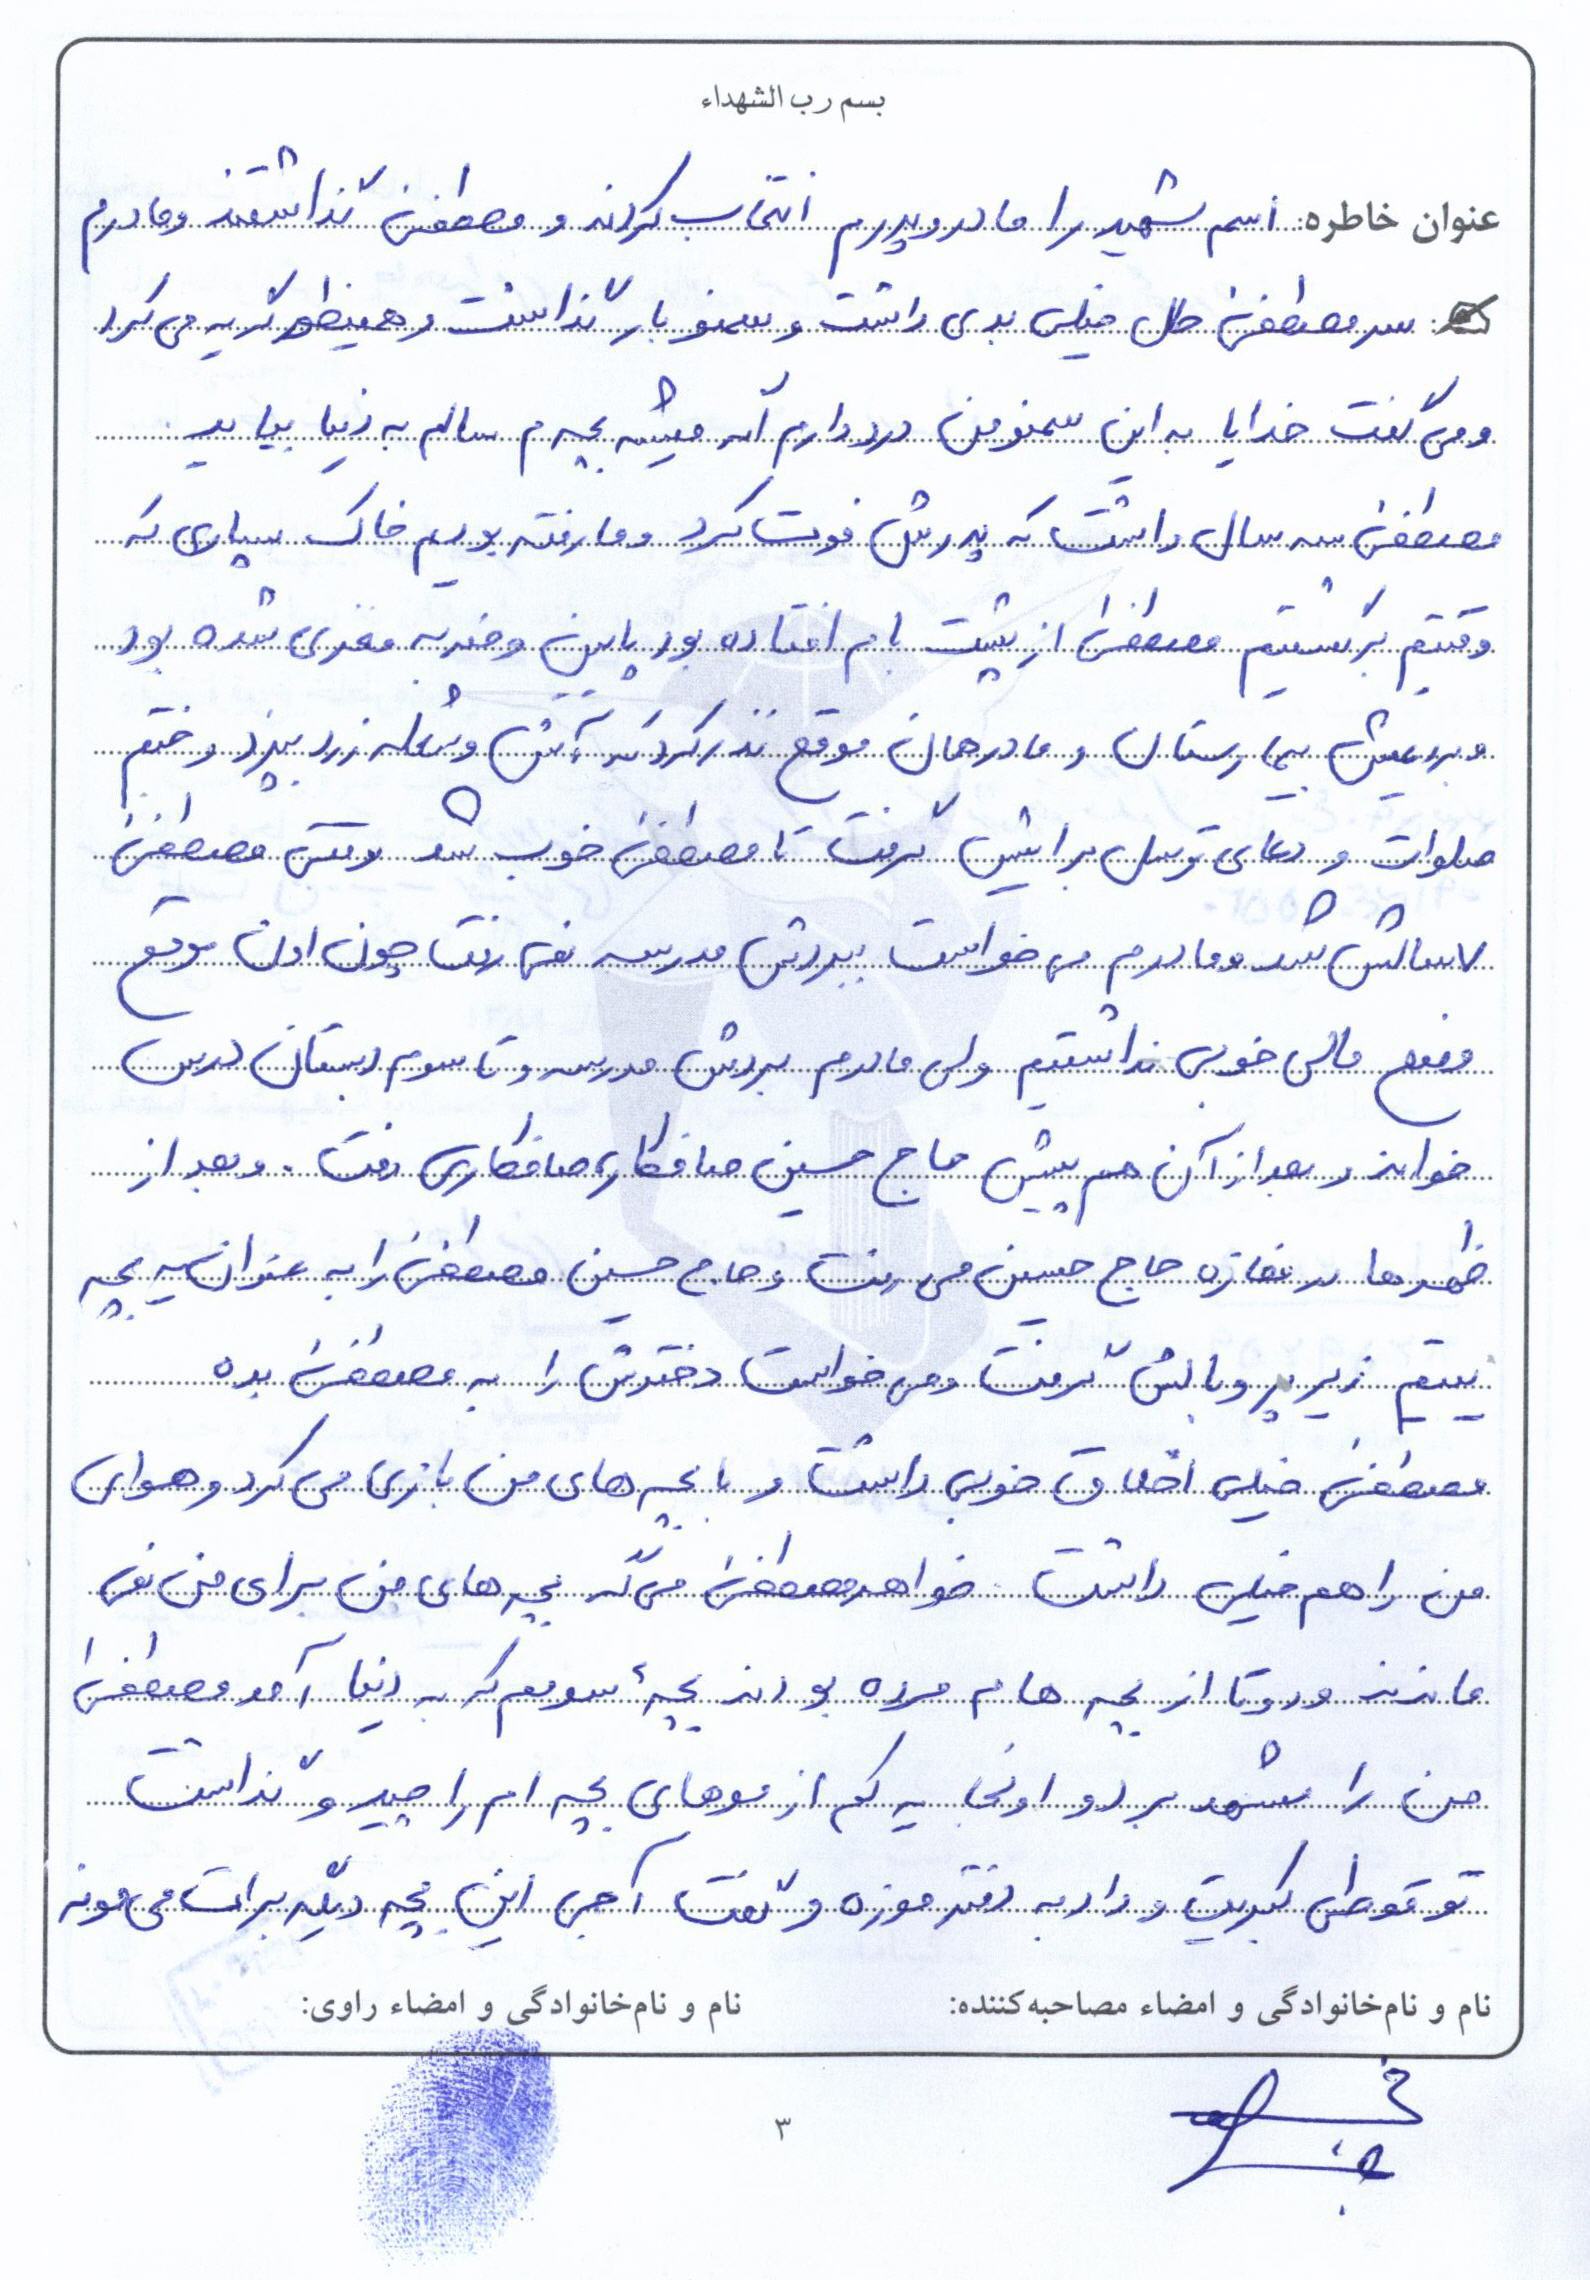 بسم رب الشهداء
عنوان خاطره: اسم شهید را مادر و پدرم انتخاب کردند و مصطفی گذاشتند و مادرم
سر مصطفی حال خیلی بدی داشت و سمنو بار گذاشت و همینطور گریه می کرد
و می گفت خدایا به این سمنو من درد دارم اگه میشه بچه م سالم به دنیا بیاید
مصطفی سه سال داشت که پدرش فوت کرد و ما رفته بودیم خاک سپاری که
وقتیم برگشتیم مصطفی از پشت بام افتاده بود پایین و ضربه مغزی شده بود
و بردیمش بیمارستان و مادر همان موقع نذر کرد که آش و شله زرد بپزد و ختم
صلوات و دعای توسل برایش گرفت تا مصطفی خوب شد وقتی مصطفی
۷ سالش شد و مادرم می خواست ببردش مدرسه نمی رفت چون اون موقع
وضع مالی خوبی نداشتیم ولی مادرم بردش مدرسه و تا سوم دبستان درس
خواند و بعد از آن هم پیش حاج حسین صافکار، صافکاری رفت. و بعد از
ظهرها در مغازه حاج حسین می رفت و حاج حسین مصطفی را به عنوان یه بچه
یتیم زیر پر و بالش گرفت و می خواست دخترش را به مصطفی بده
مصطفی خیلی اخلاق خوبی داشت و با بچه های من بازی می کرد و هوای
من را هم خیلی داشت. خواهر مصطفی می گه بچه های من برای من نمی
ماندند و دوتا از بچه هام مرده بودند بچۀ سومم که به دنیا آمد مصطفی
من را مشهد برد و اونجا یه کم از موهای بچه ام را چید و گذاشت
تو قوطی کبریت و داد به دفتر موزه و گفت آجی این بچه دیگه برات می مونه
نام و نام‌خانوادگی و امضاء مصاحبه‌کننده:
نام و نام‌خانوادگی و امضاء راوی:
۳